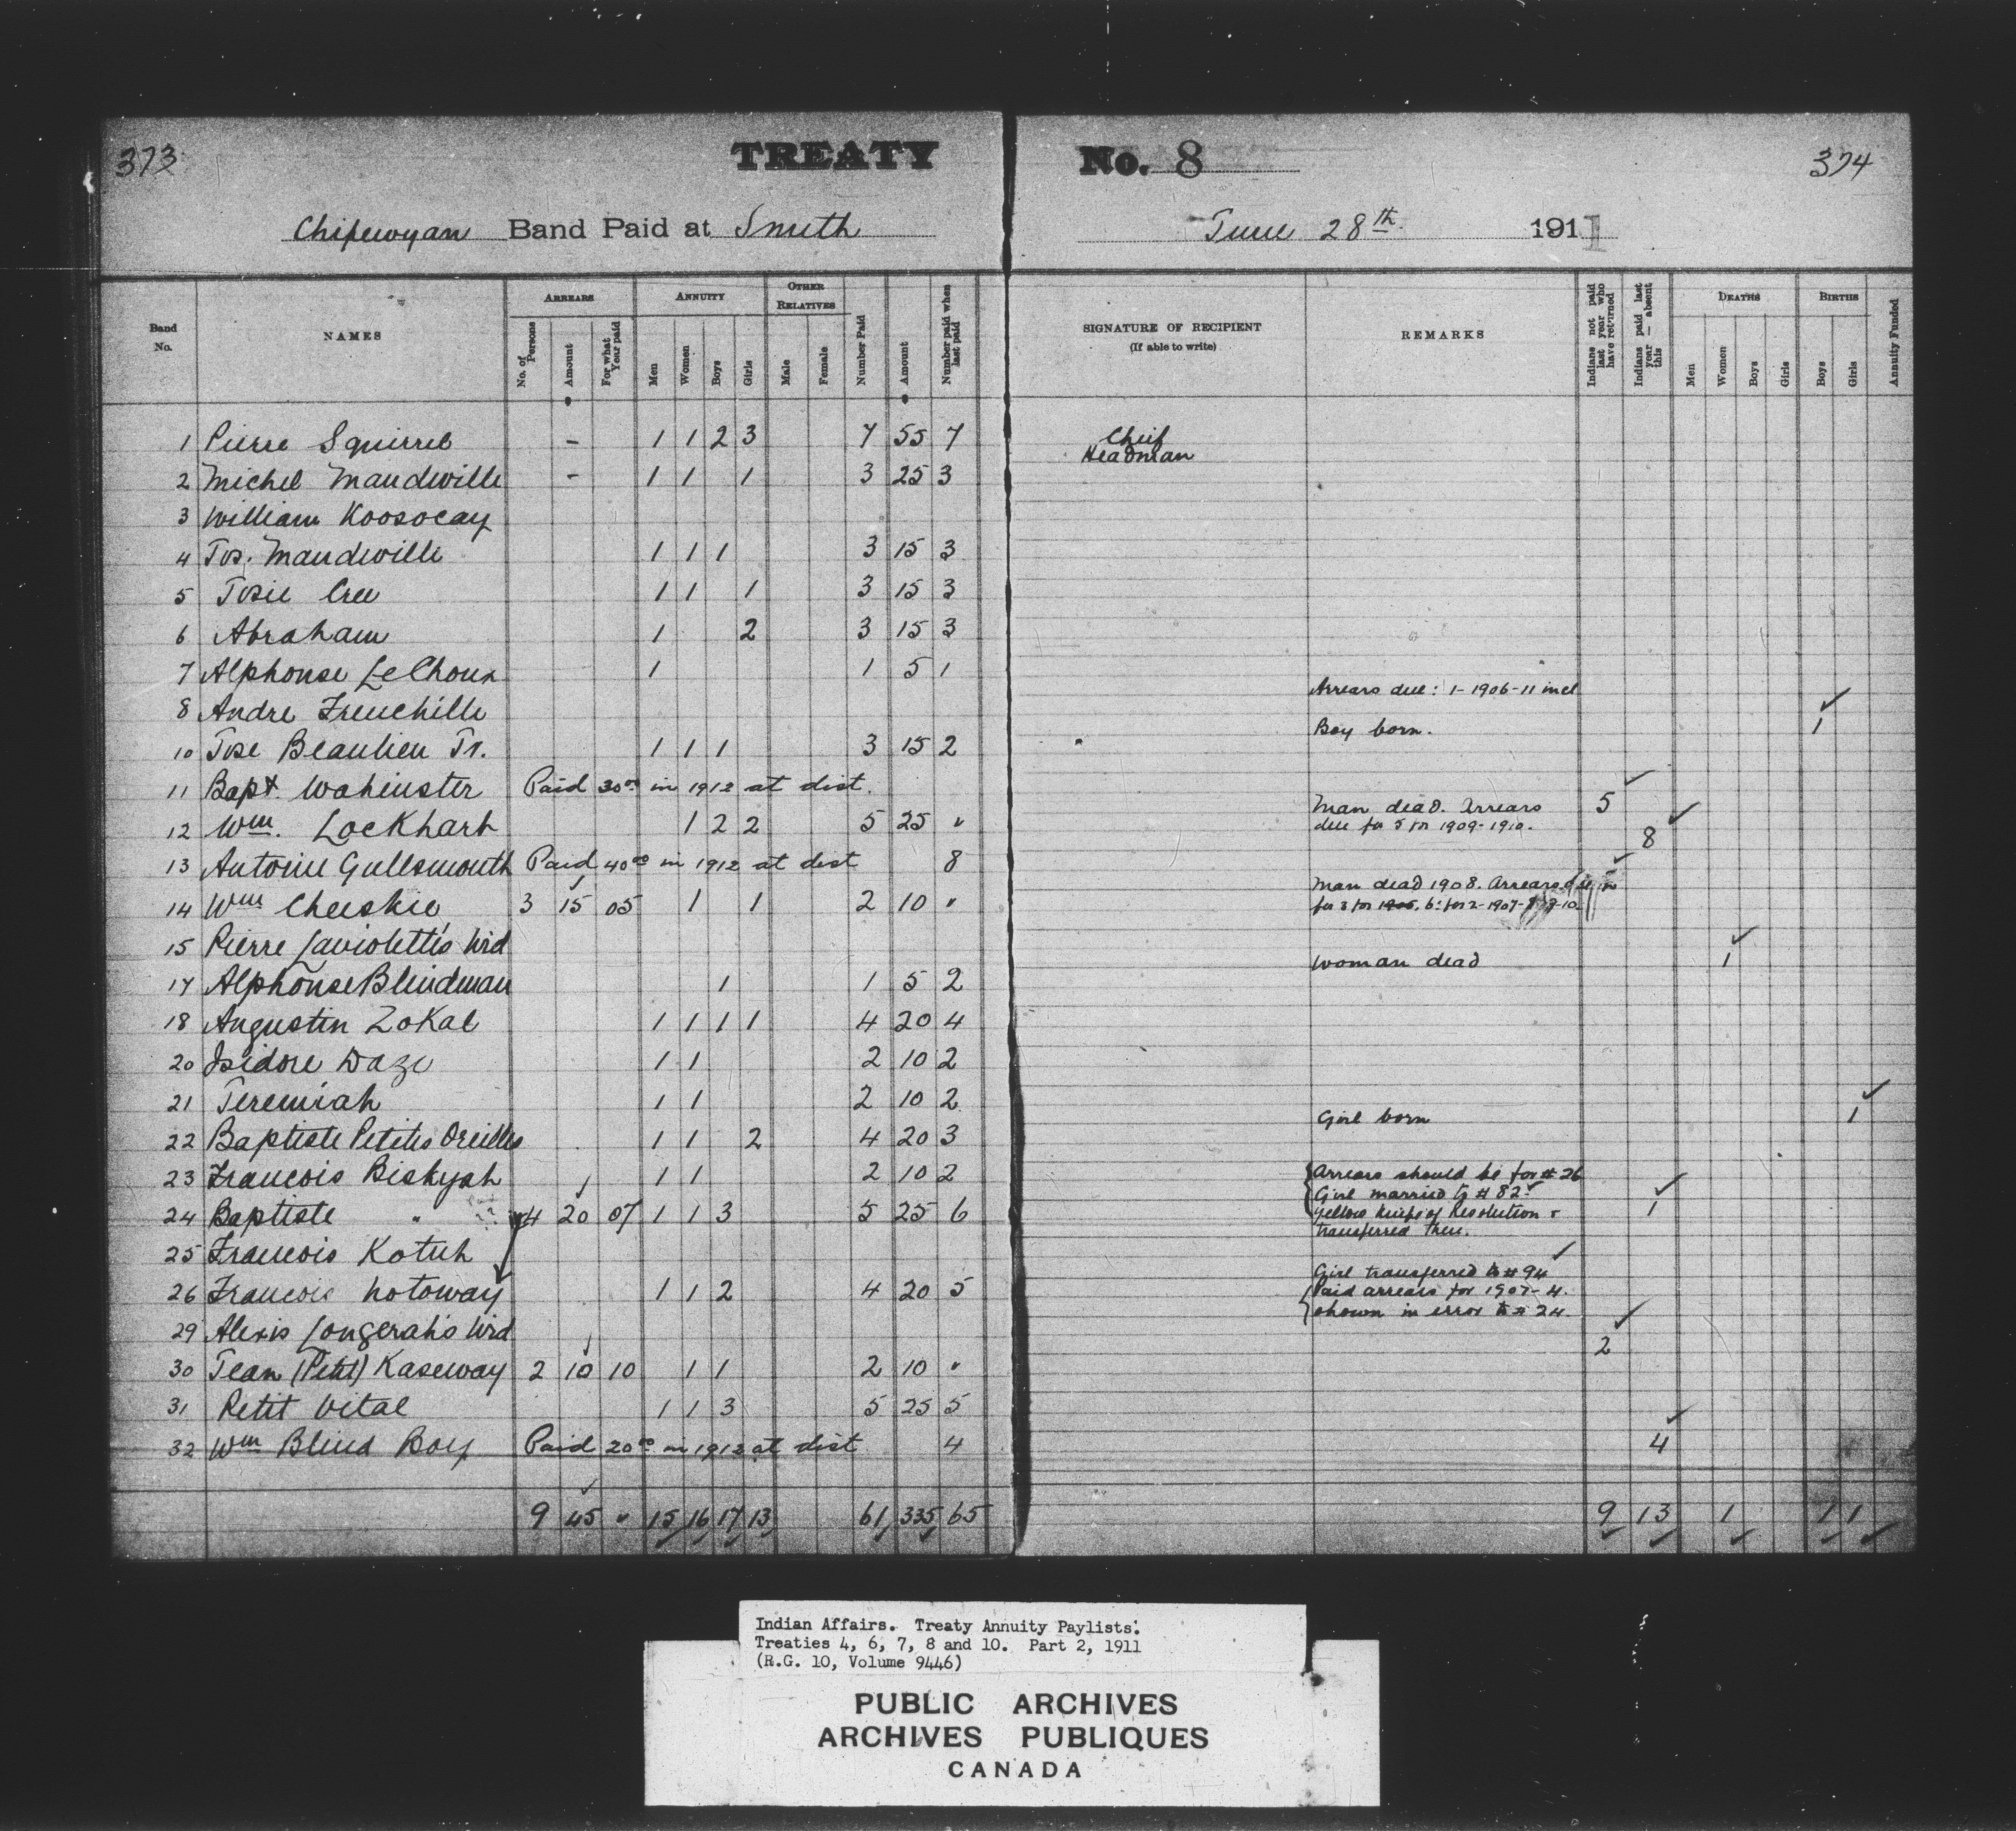 373 TREATY No. 8 374
Chipewyan Band Paid at Smith June 28th 1911
Band No. NAMES ARREARS ANNUITY OTHER RELATIVES Number Paid Amount Number paid when last paid SIGNATURE OF RECIPIENT (If able to write) REMARKS Indians not paid last year who have returned Indians paid last year — absent this DEATHS BIRTHS Annuity Funded
No. of Persons Amount For what Year paid Men Women Boys Girls Male Female Men Women Boys Girls Boys Girls
1 Pierre Squirrel - 1 1 2 3 7 55 7 Chief
2 Michel Mandeville - 1 1 1 3 25 3 Headman
3 William Koosocay
4 Jos. Mandeville 1 1 1 3 15 3
5 Josie Cree 1 1 1 3 15 3
6 Abraham 1 2 3 15 3
7 Alphonse LeChoux 1 1 5 1
8 Andre Frenchille Arrears due: 1-1906-11 incl
10 Jose Beaulieu Jr. 1 1 1 3 15 2 Boy born. 1
11 Bapt. Wahinster Paid 30.00 in 1912 at dist.
12 Wm. Lockhart 1 2 2 5 25 " Man dead. Arrears 5
due for 5 for 1909-1910.
13 Antoine Gullsmouth Paid 40.00 in 1912 at dist 8 8
14 Wm Cheeskie 3 15 05 1 1 2 10 " Man dead 1908. Arrears
for 3 for 1905, 6: for 2-1907-
15 Pierre Laviolettis Wid
17 Alphonse Blindman 1 1 5 2 Woman dead 1
18 Augustin Zokal 1 1 1 1 4 20 4
20 Isidore Daze 1 1 2 10 2
21 Jeremiah 1 1 2 10 2
22 Baptiste Petites Oreilles 1 1 2 4 20 3 Girl born 1
23 Francois Biskyah 1 1 2 10 2
24 Baptiste " 4 20 07 1 1 3 5 25 6 Arrears should be for #26
Girl married to #82 1
Yellow Knifes of Resolution &
transferred there.
25 Francois Kotuh
26 Francois Notoway 1 1 2 4 20 5 Girl transferred to #94
Paid arrears for 1907-4.
shown in error to #24.
29 Alexis Longerah's Wid
30 Jean (Petit) Kaseway 2 10 10 1 1 2 10 " 2
31 Petit Vital 1 1 3 5 25 5
32 Wm Blind Boy Paid 20.00 in 1912 at dist 4 4
9 45 " 15 16 17 13 61 335 65 9 13 1 1 1
Indian Affairs. Treaty Annuity Paylists.
Treaties 4, 6, 7, 8 and 10. Part 2, 1911
(R.G. 10, Volume 9446)
PUBLIC ARCHIVES
ARCHIVES PUBLIQUES
CANADA